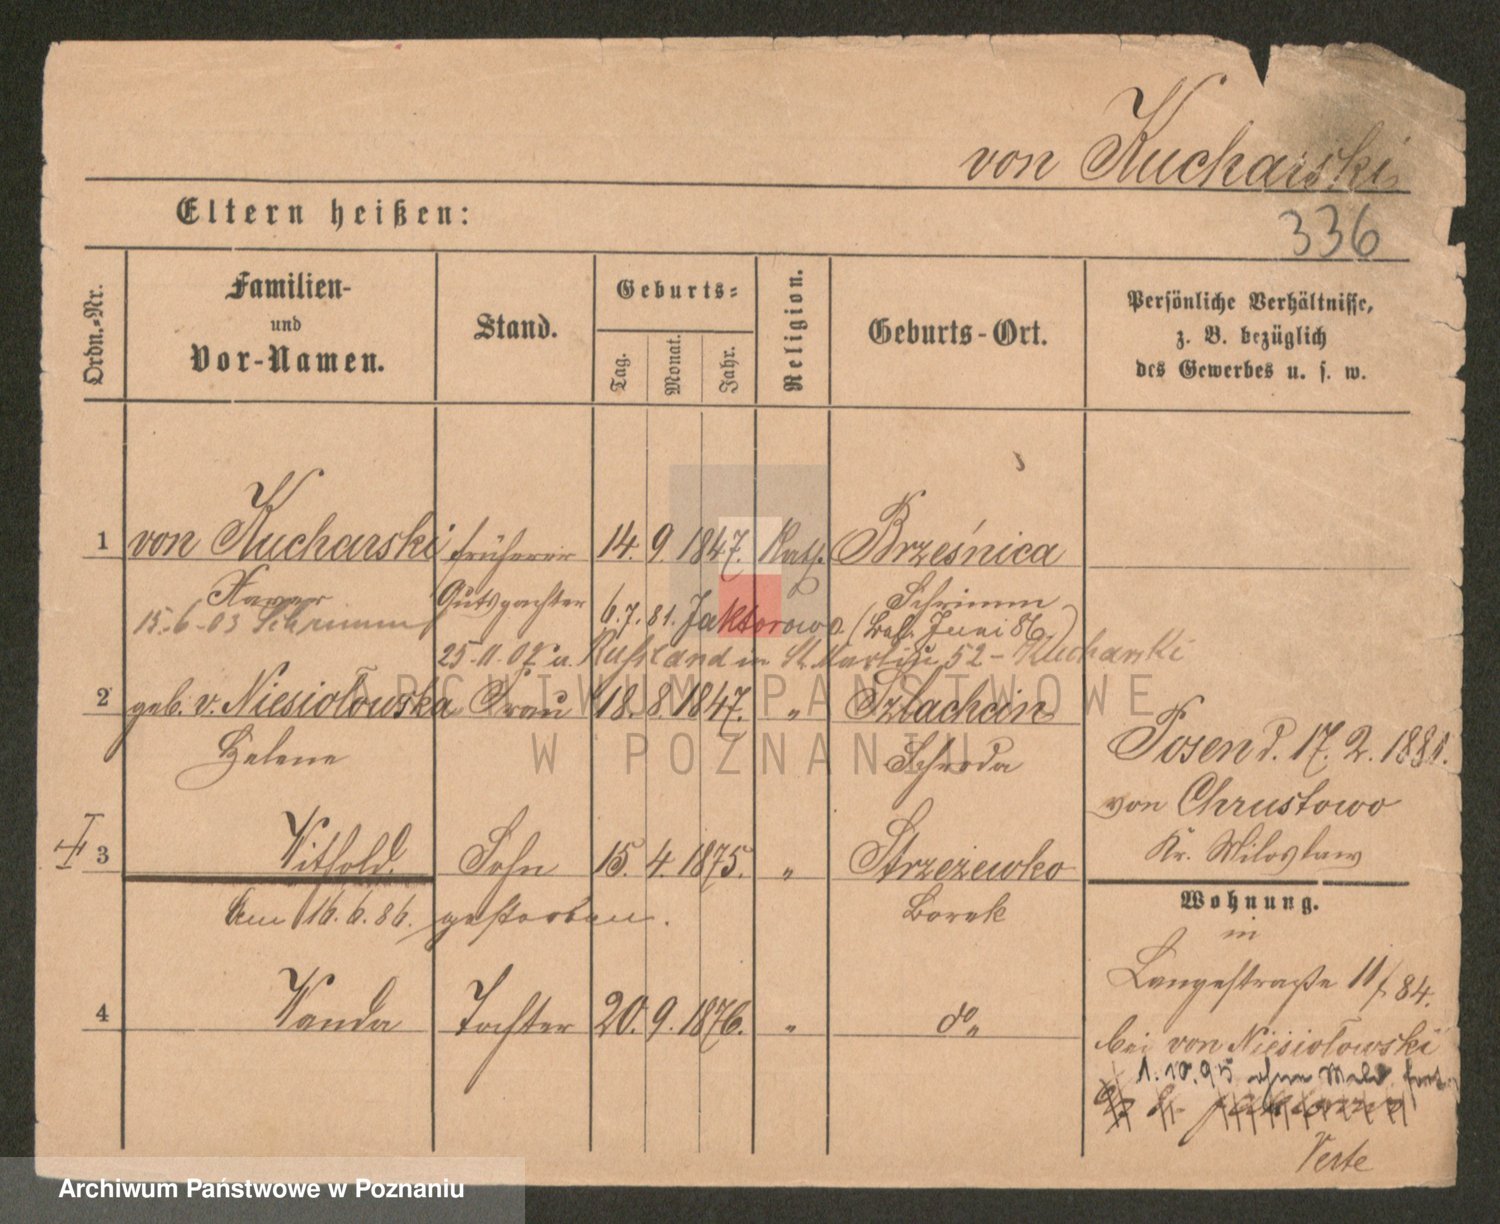 von Kucharski
Eltern heißen:
336
Ordn.-Nr.
Familien-
und
Vor-Namen.
Stand.
Geburts-
Tag.
Monat.
Jahr.
Religion.
Geburts-Ort.
Persönliche Verhältnisse,
z. B. bezüglich
des Gewerbes u. s. w.
1 von Kucharski früherer 14. 9. 1847. Kath. Brześnica
Xaver Gutspachter Schrimm
15-6-03 Schrimm 6.7.81. Jaktorowo. (Juni 86)
25.11.07 Russland in St. Martin 52 - Kucharski
2 geb. v. Niesiołowska Frau 18. 8. 1847. " Szlachcin
Helene Schroda
Posen d. 17. 2. 1881.
von Chrustowo
Kr. Miloslaw
3 Withold. Sohn 15. 4. 1875. " Strzeżewko
Am 16. 6. 86. gestorben. Borek
Wohnung.
in
Langestraße 11/ 84.
4 Wanda Tochter 20. 9. 1876. " do "
bei von Niesiołowski
1.10.95 ohne Meld. fort
Verte
ARCHIWUM PAŃSTWOWE
W POZNANIU
Archiwum Państwowe w Poznaniu